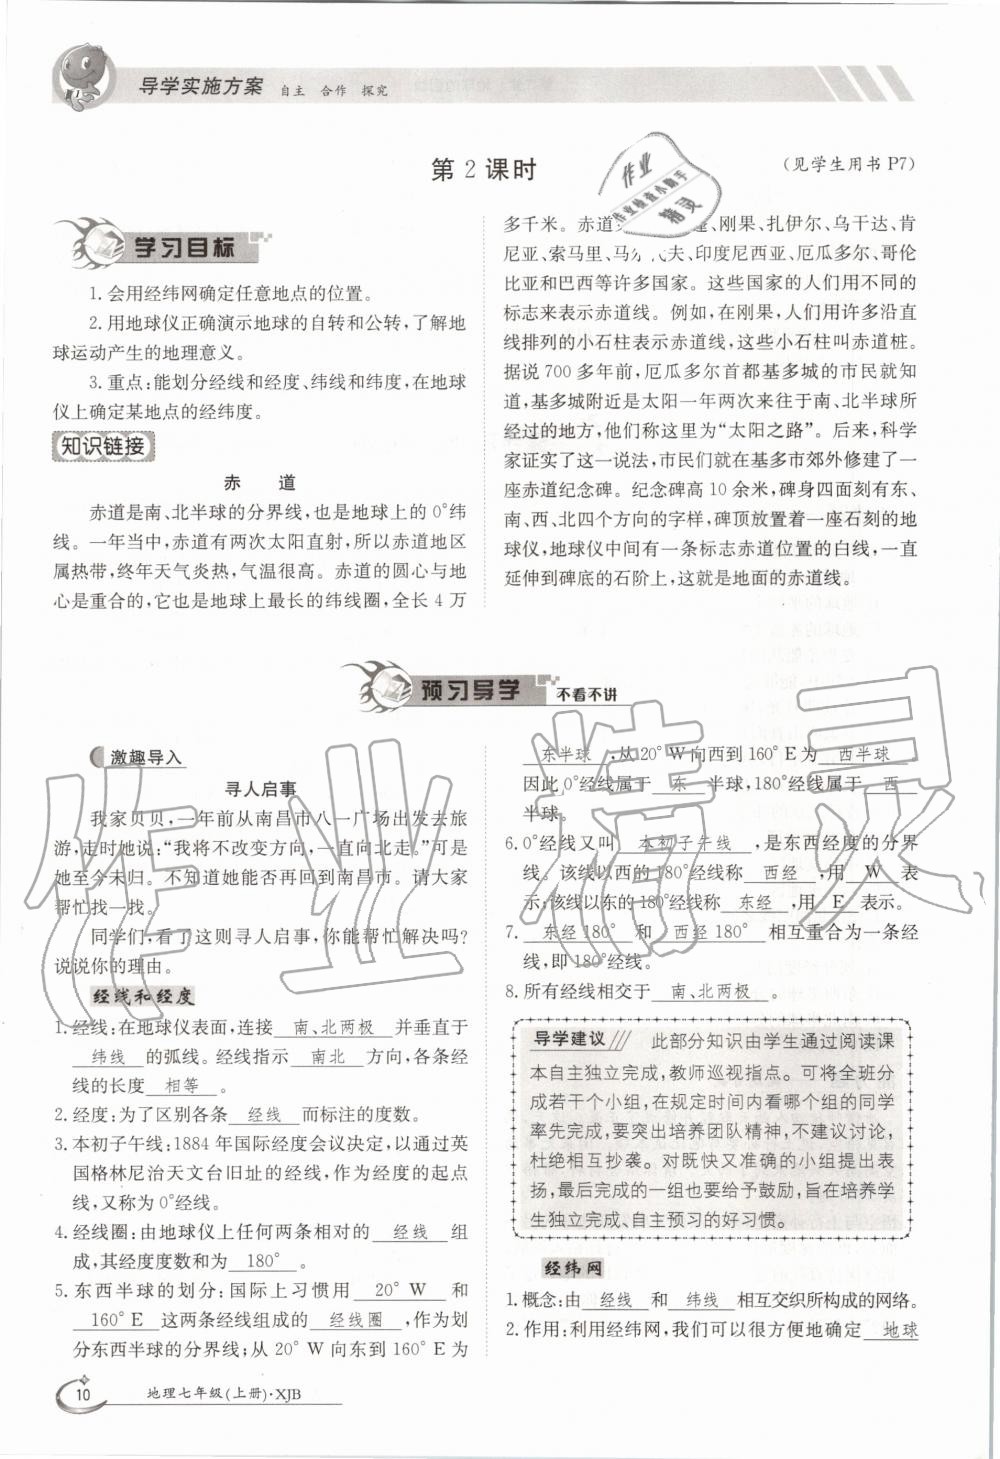 导学实施方案 自主 合作 探究
第 2 课时
(见学生用书 P7)
学习目标
1. 会用经纬网确定任意地点的位置。
2. 用地球仪正确演示地球的自转和公转,了解地
球运动产生的地理意义。
3. 重点:能划分经线和经度、纬线和纬度,在地球
仪上确定某地点的经纬度。
知识链接
赤 道
赤道是南、北半球的分界线,也是地球上的 0°纬
线。一年当中,赤道有两次太阳直射,所以赤道地区
属热带,终年天气炎热,气温很高。赤道的圆心与地
心是重合的,它也是地球上最长的纬线圈,全长 4 万
多千米。赤道 、刚果、扎伊尔、乌干达、肯
尼亚、索马里、马 代夫、印度尼西亚、厄瓜多尔、哥伦
比亚和巴西等许多国家。这些国家的人们用不同的
标志来表示赤道线。例如,在刚果,人们用许多沿直
线排列的小石柱表示赤道线,这些小石柱叫赤道桩。
据说 700 多年前,厄瓜多尔首都基多城的市民就知
道,基多城附近是太阳一年两次来往于南、北半球所
经过的地方,他们称这里为“太阳之路”。后来,科学
家证实了这一说法,市民们就在基多市郊外修建了一
座赤道纪念碑。纪念碑高 10 余米,碑身四面刻有东、
南、西、北四个方向的字样,碑顶放置着一座石刻的地
球仪,地球仪中间有一条标志赤道位置的白线,一直
延伸到碑底的石阶上,这就是地面的赤道线。
作业
作业检查小助手
精灵
预习导学 不看不讲
激趣导入
寻人启事
我家贝贝,一年前从南昌市八一广场出发去旅
游,走时她说:“我将不改变方向,一直向北走。”可是
她至今未归。不知道她能否再回到南昌市。请大家
帮忙找一找。
同学们,看了这则寻人启事,你能帮忙解决吗?
说说你的理由。
经线和经度
1. 经线:在地球仪表面,连接 南、北两极 并垂直于
纬线 的弧线。经线指示 南北 方向,各条经
线的长度 相等 。
2. 经度:为了区别各条 经线 而标注的度数。
3. 本初子午线:1884 年国际经度会议决定,以通过英
国格林尼治天文台旧址的经线,作为经度的起点
线,又称为 0°经线。
4. 经线圈:由地球仪上任何两条相对的 经线 组
成,其经度度数和为 180° 。
5. 东西半球的划分:国际上习惯用 20° W 和
160° E 这两条经线组成的 经线圈 ,作为划
分东西半球的分界线;从 20° W 向东到 160° E 为
东半球 ,从 20° W 向西到 160° E 为 西半球
因此 0°经线属于 东 半球,180°经线属于 西
半球。
6. 0°经线又叫 本初子午线 ,是东西经度的分界
线。该线以西的 180°经线称 西经 ,用 W 表
示;该线以东的 180°经线称 东经 ,用 E 表示。
7. 东经 180° 和 西经 180° 相互重合为一条经
线,即 180°经线。
8. 所有经线相交于 南、北两极 。
导学建议 此部分知识由学生通过阅读课
本自主独立完成,教师巡视指点。可将全班分
成若干个小组,在规定时间内看哪个组的同学
率先完成,要突出培养团队精神,不建议讨论,
杜绝相互抄袭。对既快又准确的小组提出表
扬,最后完成的一组也要给予鼓励,旨在培养学
生独立完成、自主预习的好习惯。
经纬网
1. 概念:由 经线 和 纬线 相互交织所构成的网络。
2. 作用:利用经纬网,我们可以很方便地确定 地球
作业精灵
10 地理七年级(上册)·XJB